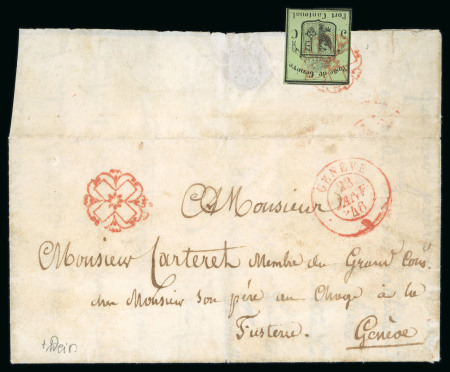 Port Cantonal
Poste de Genève
5 C
GENÈVE
23
JANV
46
A Monsieur
Monsieur Carteret Membre du Grand Cons.
chez Monsieur son père au Change à la
Fusterie. Genève